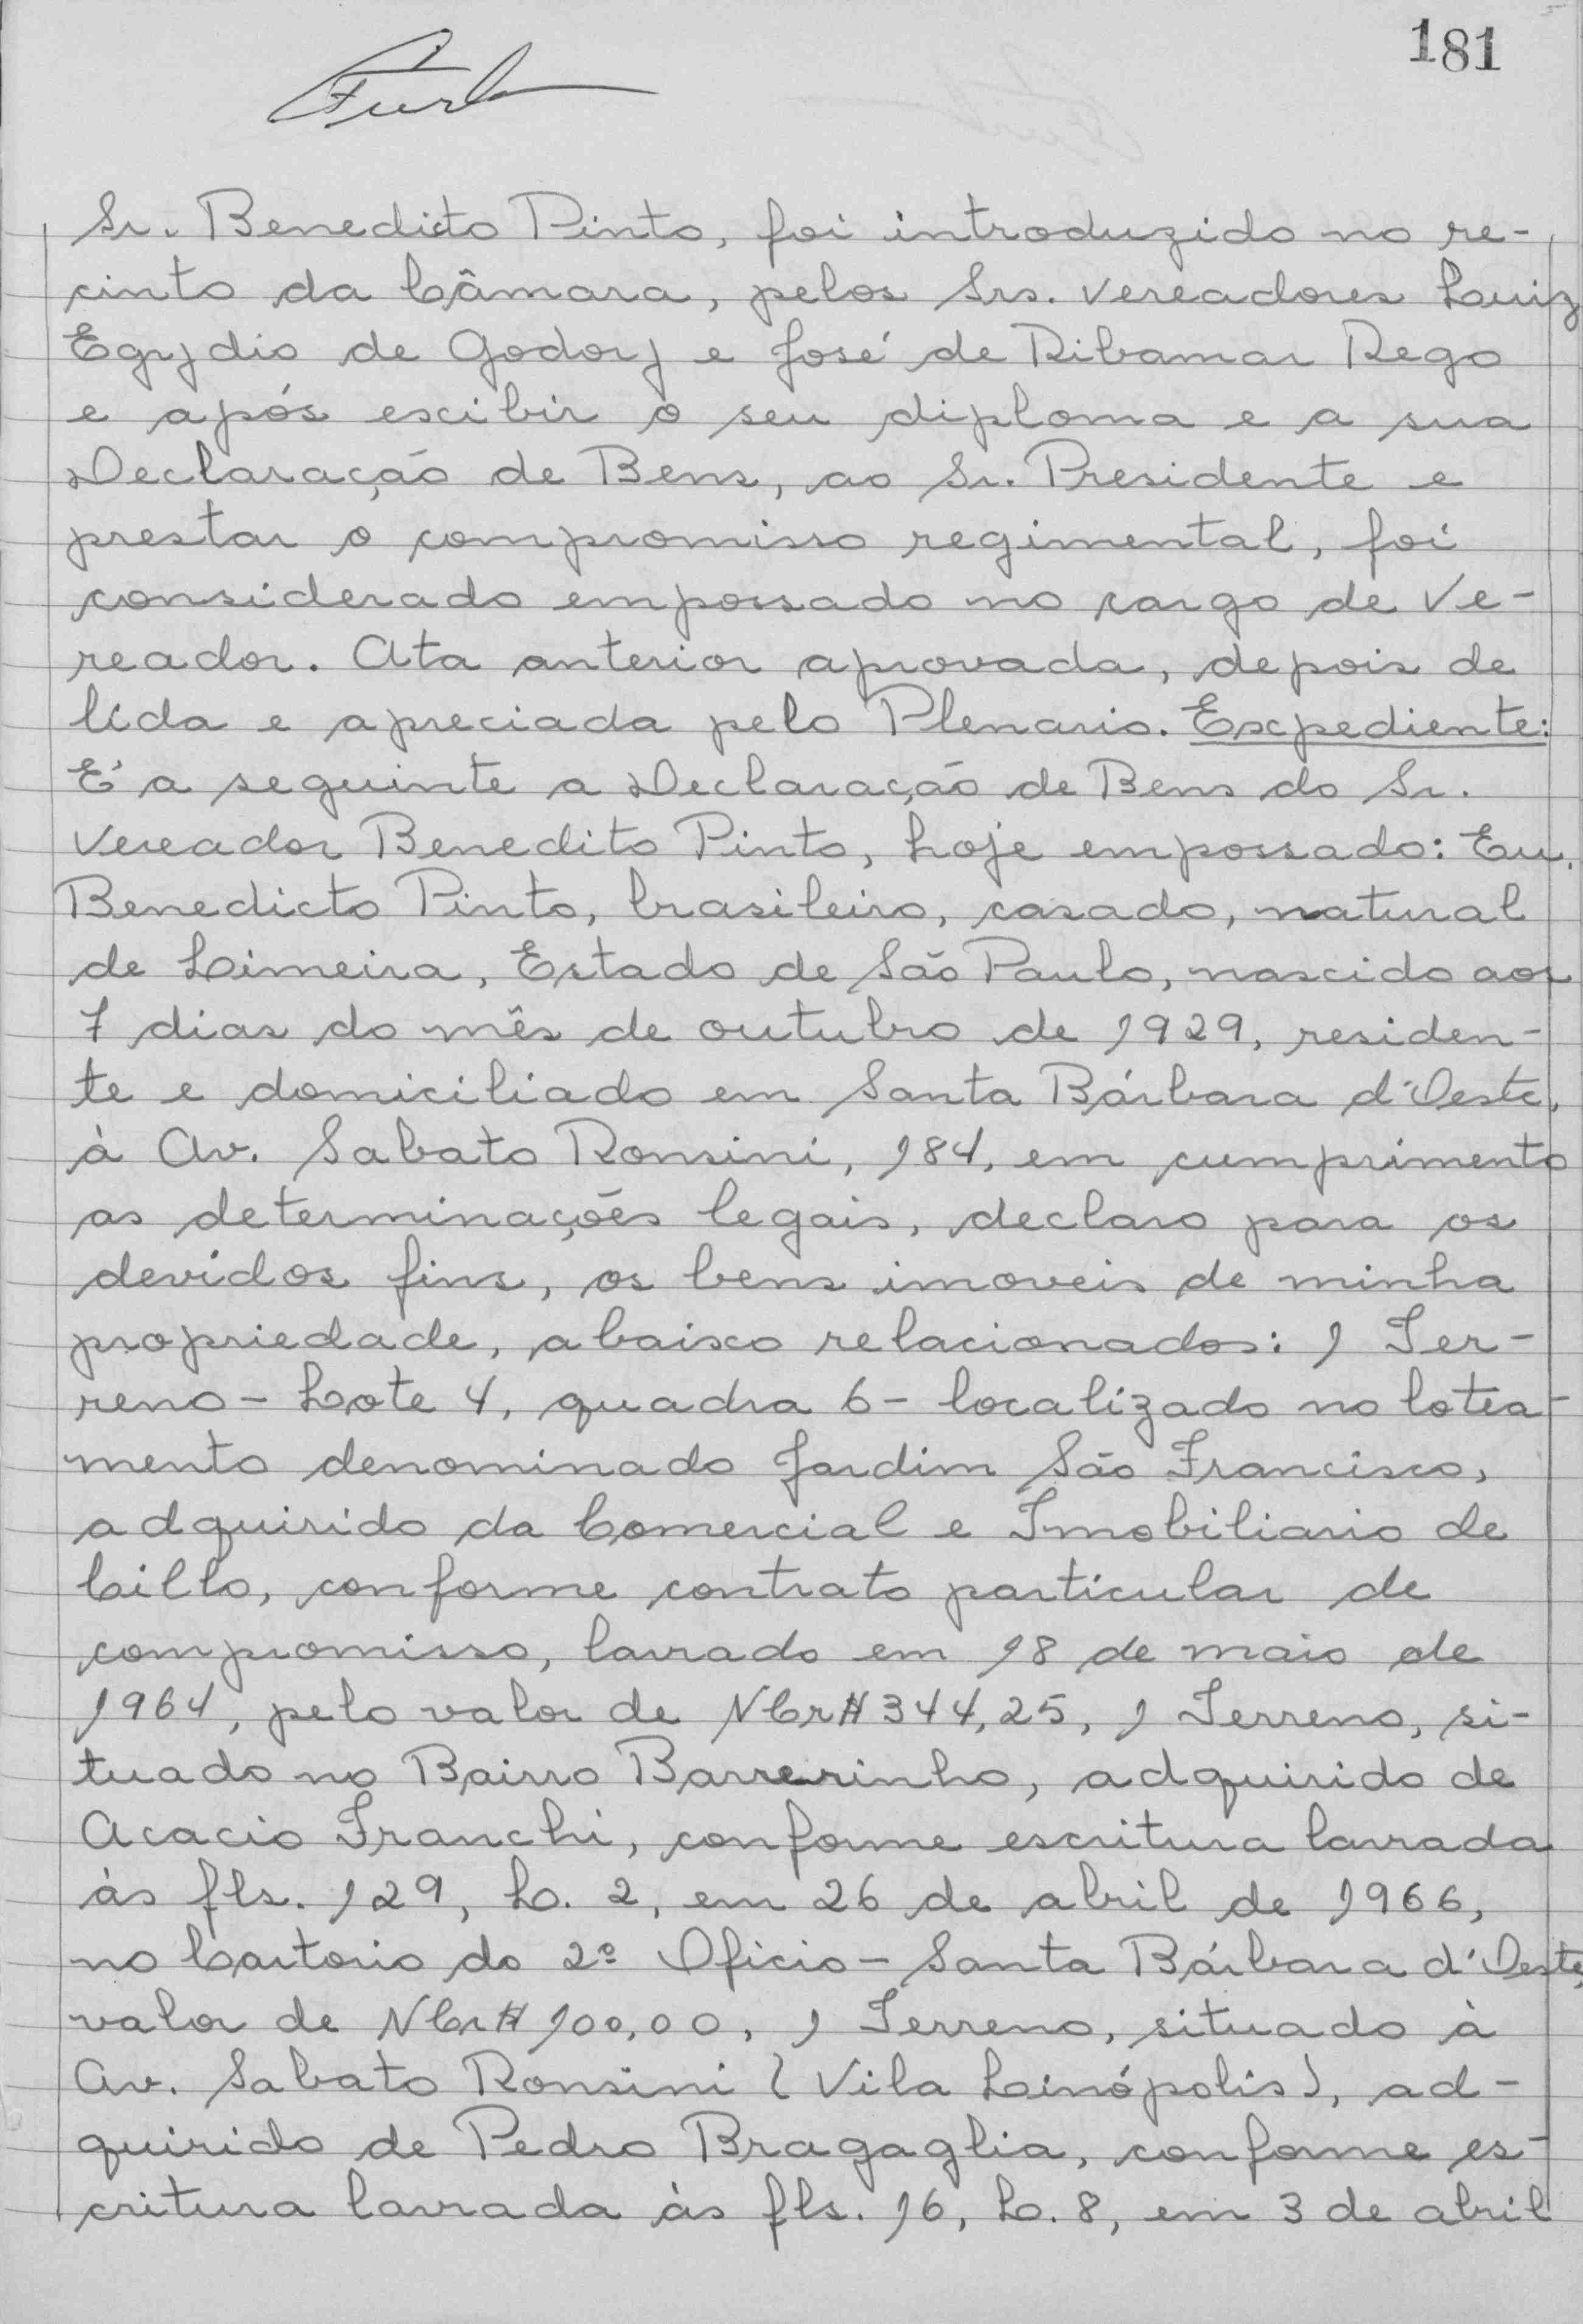 181
Sr. Benedicto Pinto, foi introduzido no re-
cinto da Câmara, pelos Srs. Vereadores Luiz
Egydio de Godoy e José de Ribamar Rego
e após excibir o seu diploma e a sua
Declaração de Bens, ao Sr. Presidente e
prestar o compromisso regimental, foi
considerado empossado no cargo de Ve-
reador. Ata anterior aprovada, depois de
lida e apreciada pelo Plenario. Expediente:
É a seguinte a Declaração de Bens do Sr.
Vereador Benedito Pinto, hoje empossado: Eu,
Benedicto Pinto, brasileiro, casado, natural
de Limeira, Estado de São Paulo, nascido aos
7 dias do mês de outubro de 1929, residen-
te e domiciliado em Santa Bárbara d'Oeste,
à Av. Sabato Ronsini, 184, em cumprimento
as determinações legais, declaro para os
devidos fins, os bens imoveis de minha
propriedade, abaixo relacionados: 1 Ter-
reno - Lote 4, quadra 6 - localizado no lotea-
mento denominado Jardim São Francisco,
adquirido da Comercial e Imobiliario de
Cillo, conforme contrato particular de
compromisso, lavrado em 18 de maio de
1964, pelo valor de NCr$ 344,25, 1 Terreno, si-
tuado no Bairro Barreirinho, adquirido de
Acacio Franchi, conforme escritura lavrada
às fls. 129, L. 2, em 26 de abril de 1966,
no Cartorio do 2º Oficio - Santa Bárbara d'Oeste,
valor de NCr$ 100,00, 1 Terreno, situado à
Av. Sabato Ronsini (Vila Linópolis), ad-
quirido de Pedro Bragaglia, conforme es-
critura lavrada às fls. 16, L. 8, em 3 de abril